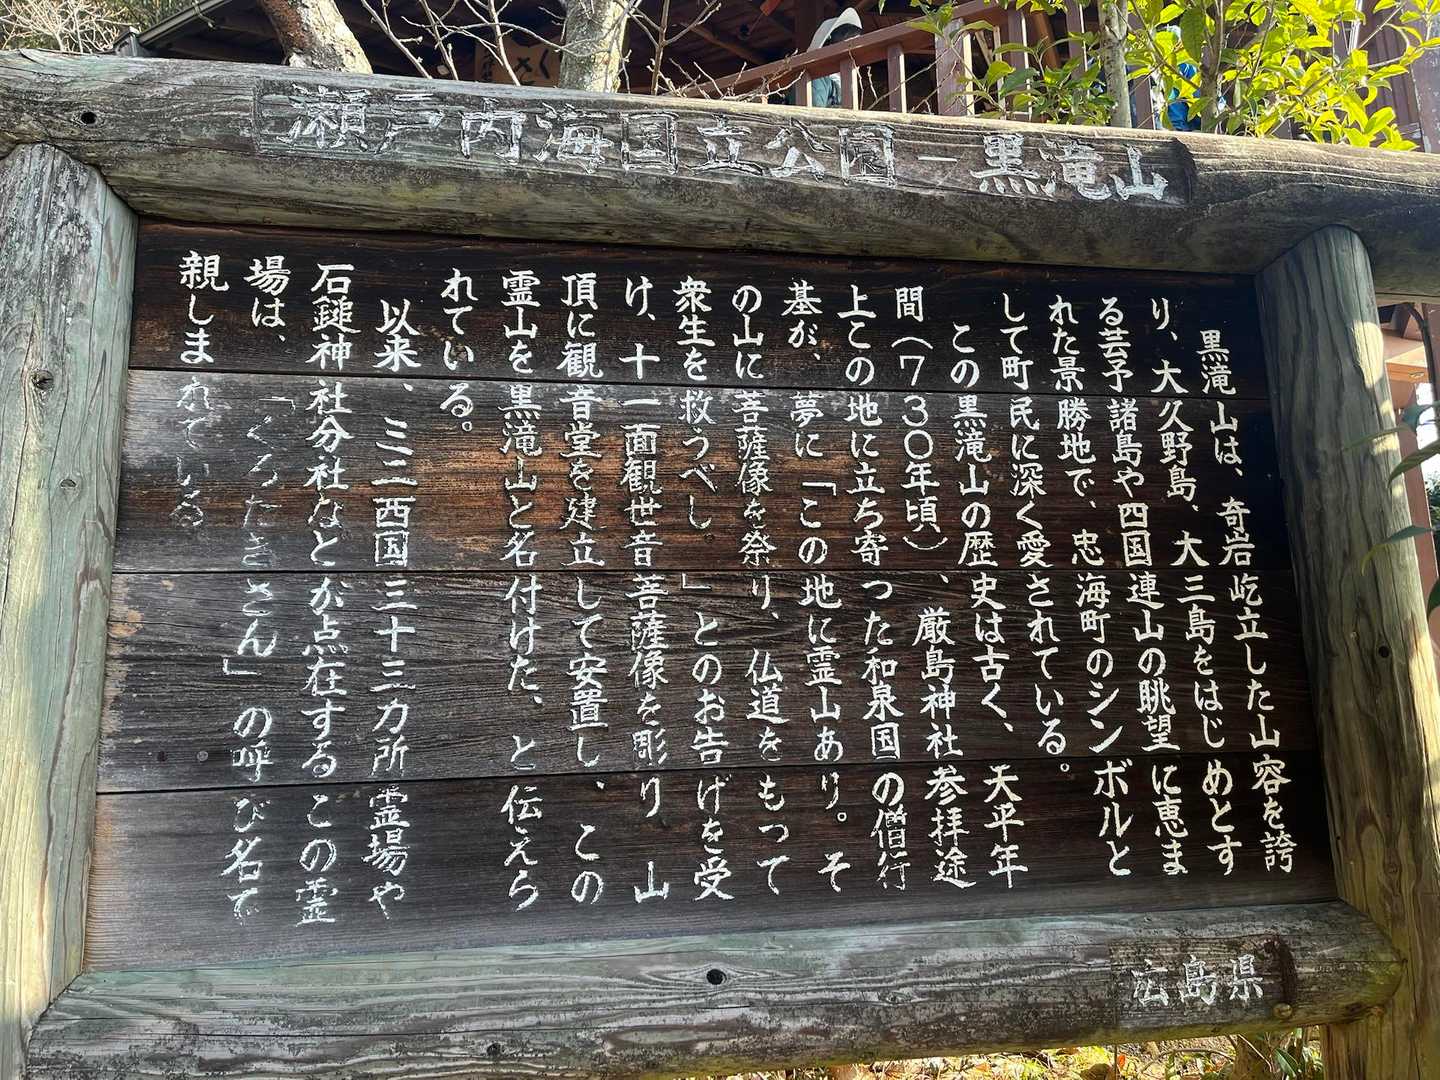 瀬戸内海国立公園－黒滝山
黒滝山は、奇岩屹立した山容を誇
り、大久野島、大三島をはじめとす
る芸予諸島や四国連山の眺望に恵ま
れた景勝地で、忠海町のシンボルと
して町民に深く愛されている。
この黒滝山の歴史は古く、天平年
間（７３０年頃）、厳島神社参拝途
上この地に立ち寄つた和泉国の僧行
基が、夢に「この地に霊山あり。そ
の山に菩薩像を祭り、仏道をもって
衆生を救うべし」とのお告げを受
け、十一面観世音菩薩像を彫り、山
頂に観音堂を建立して安置し、この
霊山を黒滝山と名付けた、と伝えら
れている。
以来、三二西国三十三カ所霊場や
石鎚神社分社などが点在するこの霊
場は、「くろたきさん」の呼び名で
親しまれている
広島県